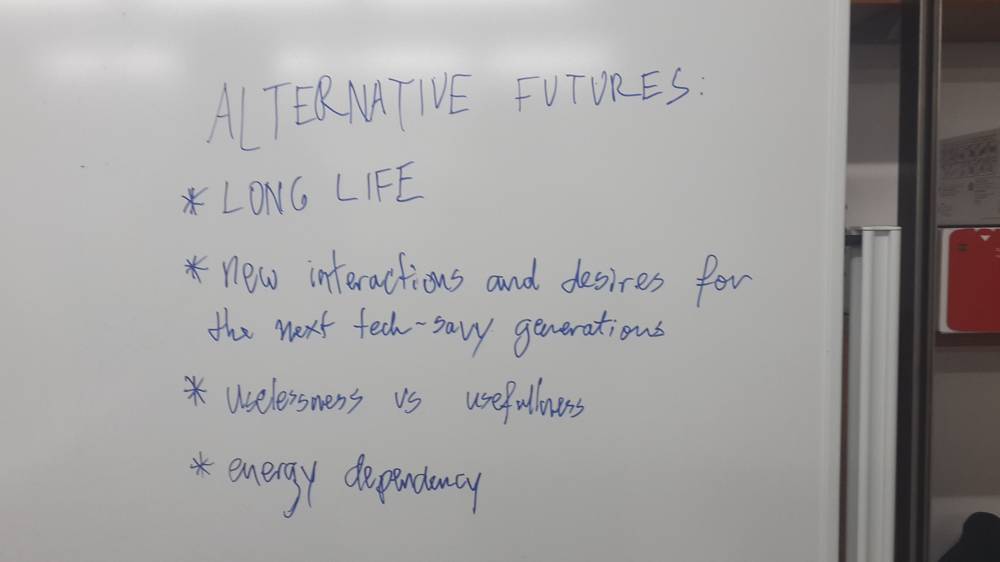 ALTERNATIVE FUTURES:
* LONG LIFE
* new interactions and desires for
the next tech-savy generations
* uselessness vs usefullness
* energy dependency